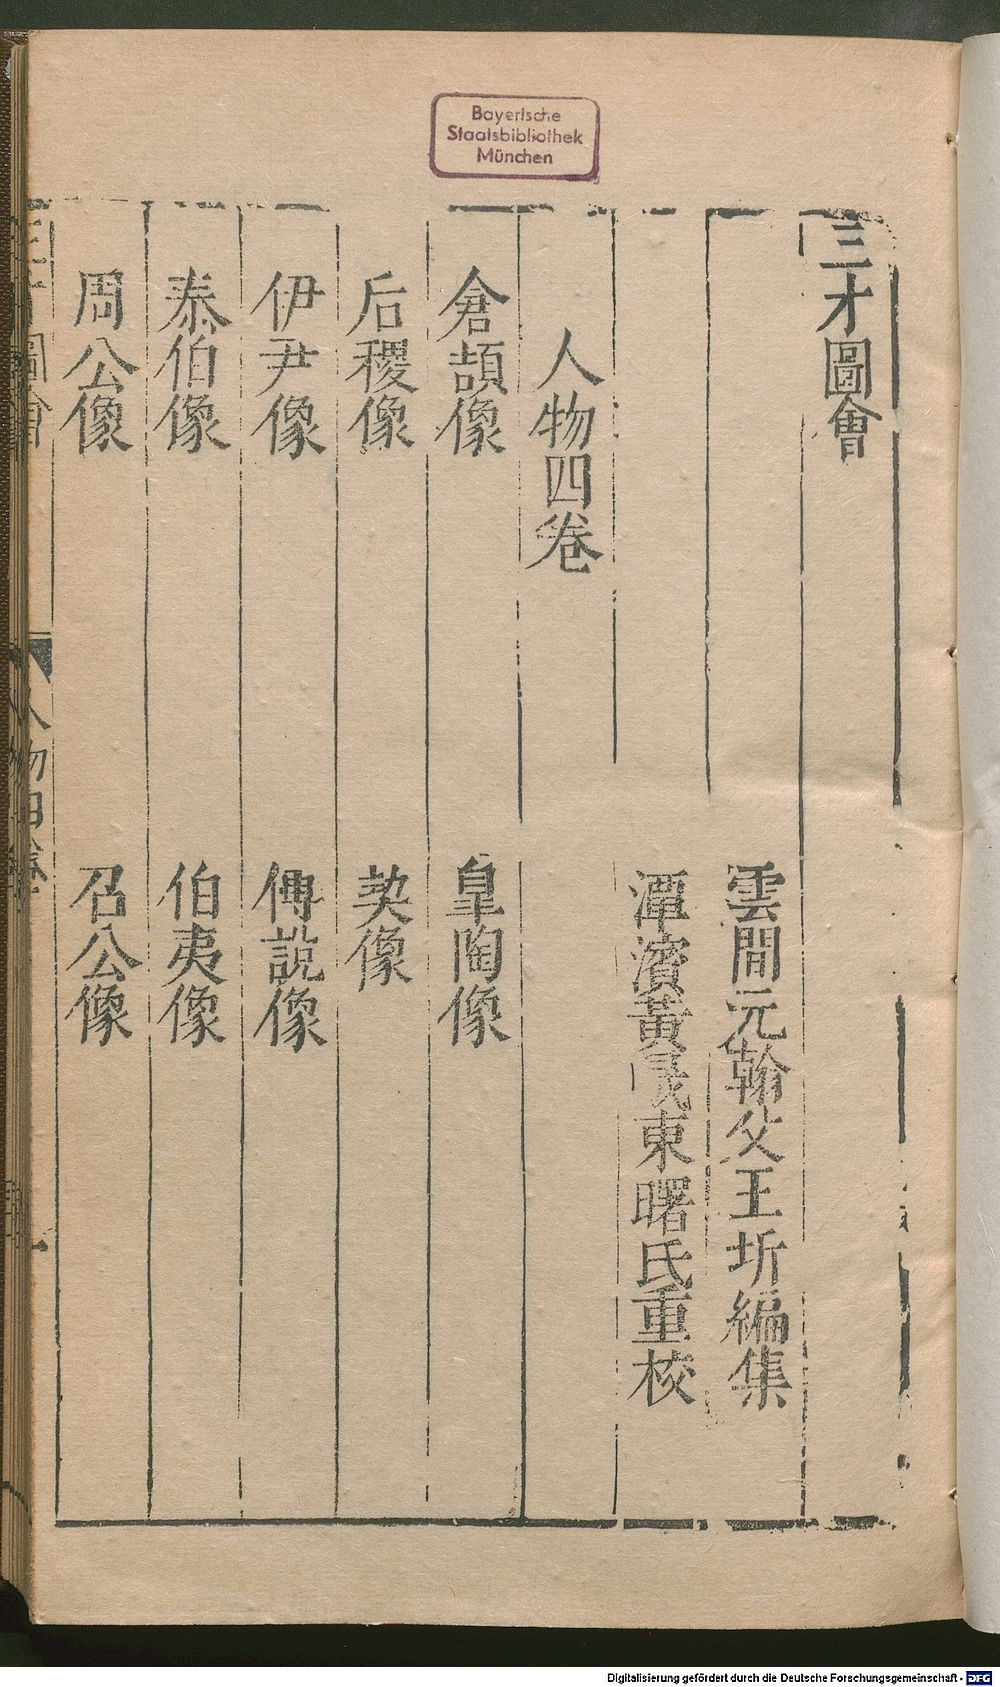 Bayerische
Staatsbibliothek
München
三才圖會
雲間元翰父王圻編集
潭濱黃晟東曙氏重校
人物四卷
倉頡像
皐陶像
后稷像
契像
伊尹像
傅說像
泰伯像
伯夷像
周公像
召公像
三才圖會
人物四卷
一
Digitalisierung gefördert durch die Deutsche Forschungsgemeinschaft - DFG